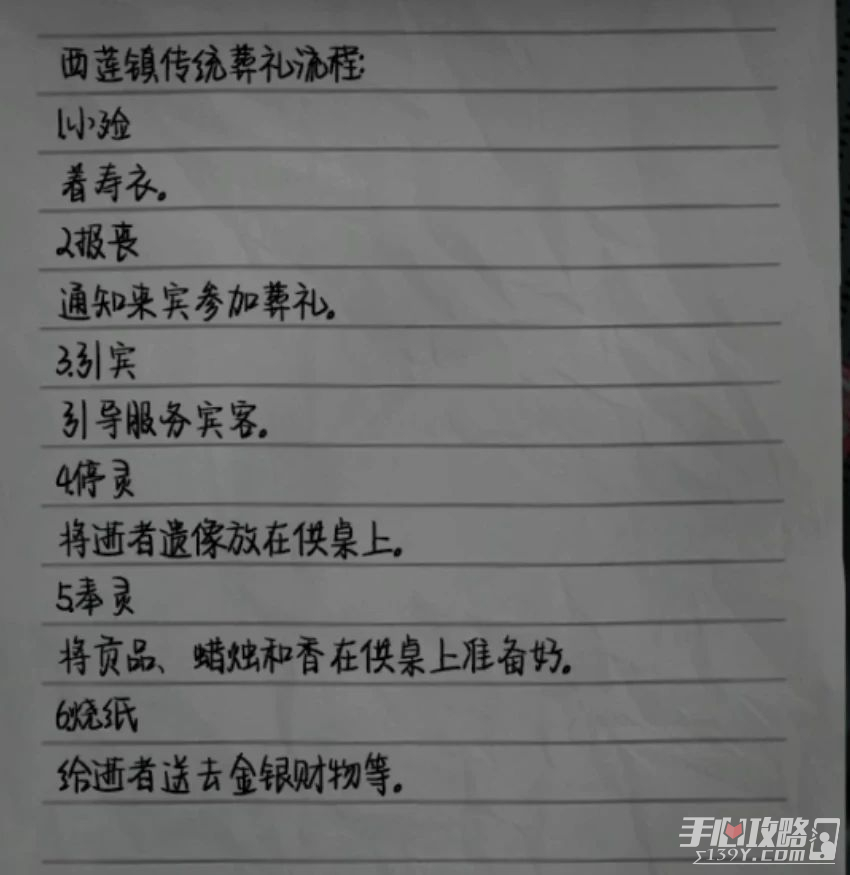 西莲镇传统葬礼流程:
1.小殓
着寿衣。
2.报丧
通知来宾参加葬礼。
3.引宾
引导服务宾客。
4.停灵
将逝者遗像放在供桌上。
5.奉灵
将贡品、蜡烛和香在供桌上准备好。
6.烧纸
给逝者送去金银财物等。
手心攻略
S139Y.COM